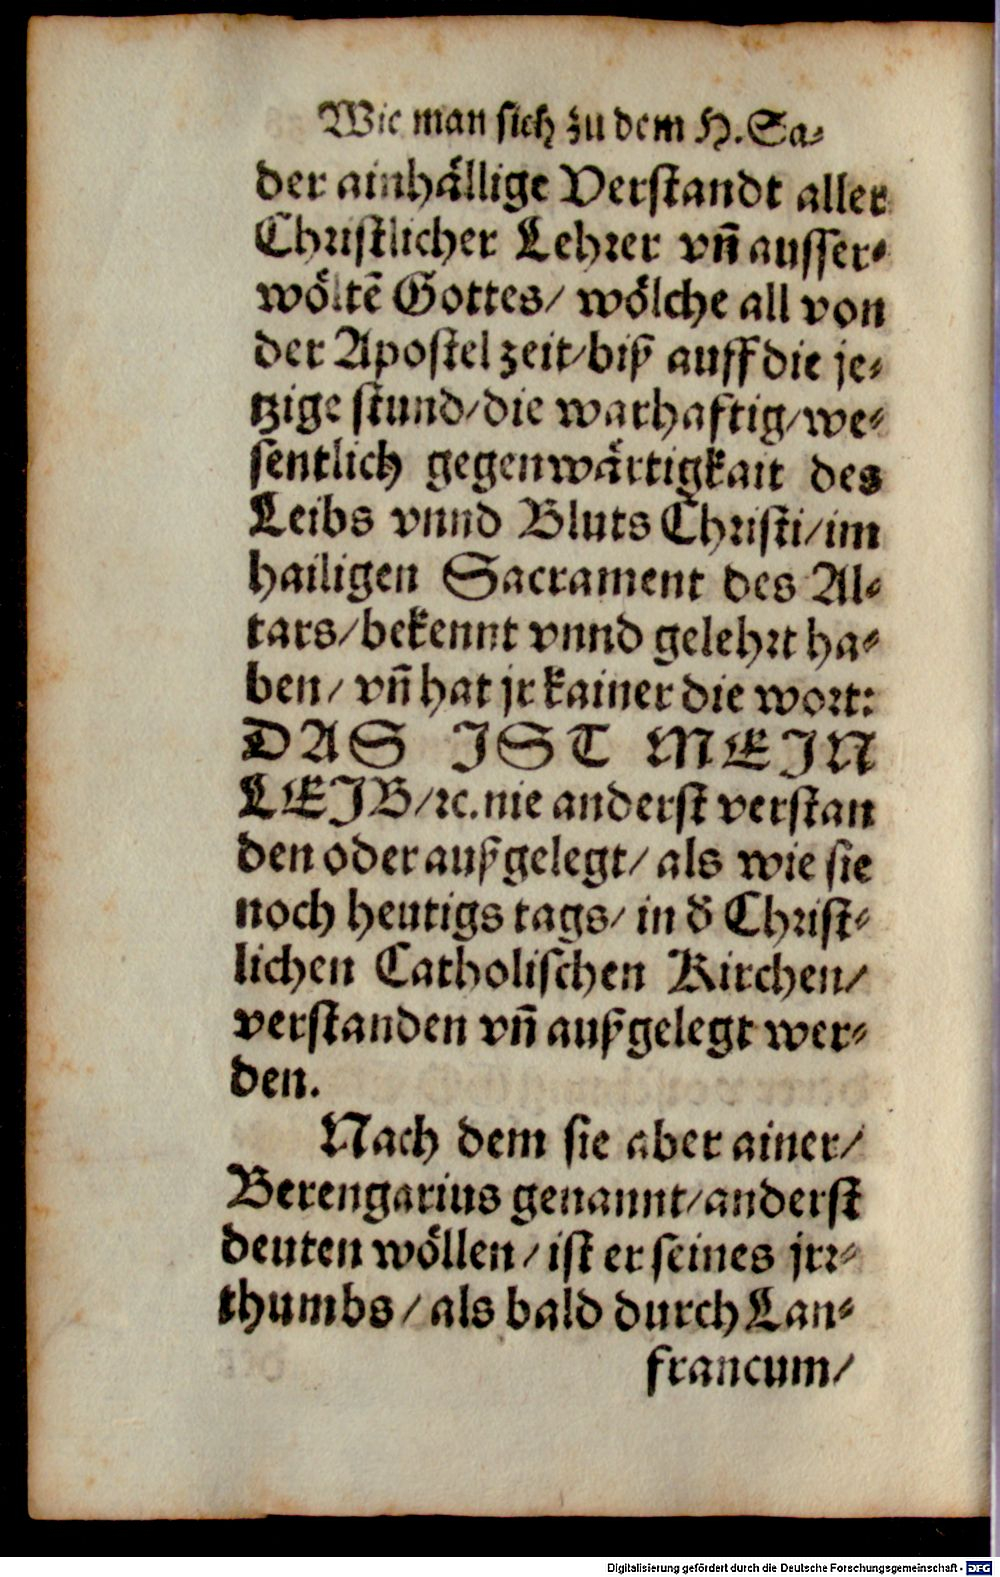 Wie man sich zu dem H. Sa⸗
der ainhällige Verstandt aller
Christlicher Lehrer vn̄ ausser⸗
wöltē Gottes/ wölche all von
der Apostel zeit/biß auff die je⸗
tzige stund/die warhaftig/we⸗
sentlich gegenwärtigkait des
Leibs vnnd Bluts Christi/im
hailigen Sacrament des Al⸗
tars/bekennt vnnd gelehrt ha⸗
ben/ vn̄ hat jr kainer die wort:
DAS JST MEJN
LEJB/ꝛc. nie anderst verstan
den oder außgelegt/ als wie sie
noch heutigs tags/ in d̄ Christ⸗
lichen Catholischen Kirchen/
verstanden vn̄ außgelegt wer⸗
den.
Nach dem sie aber ainer/
Berengarius genannt/anderst
deuten wöllen/ist er seines jrr⸗
thumbs/als bald durch Lan⸗
francum/
Digitalisierung gefördert durch die Deutsche Forschungsgemeinschaft - DFG